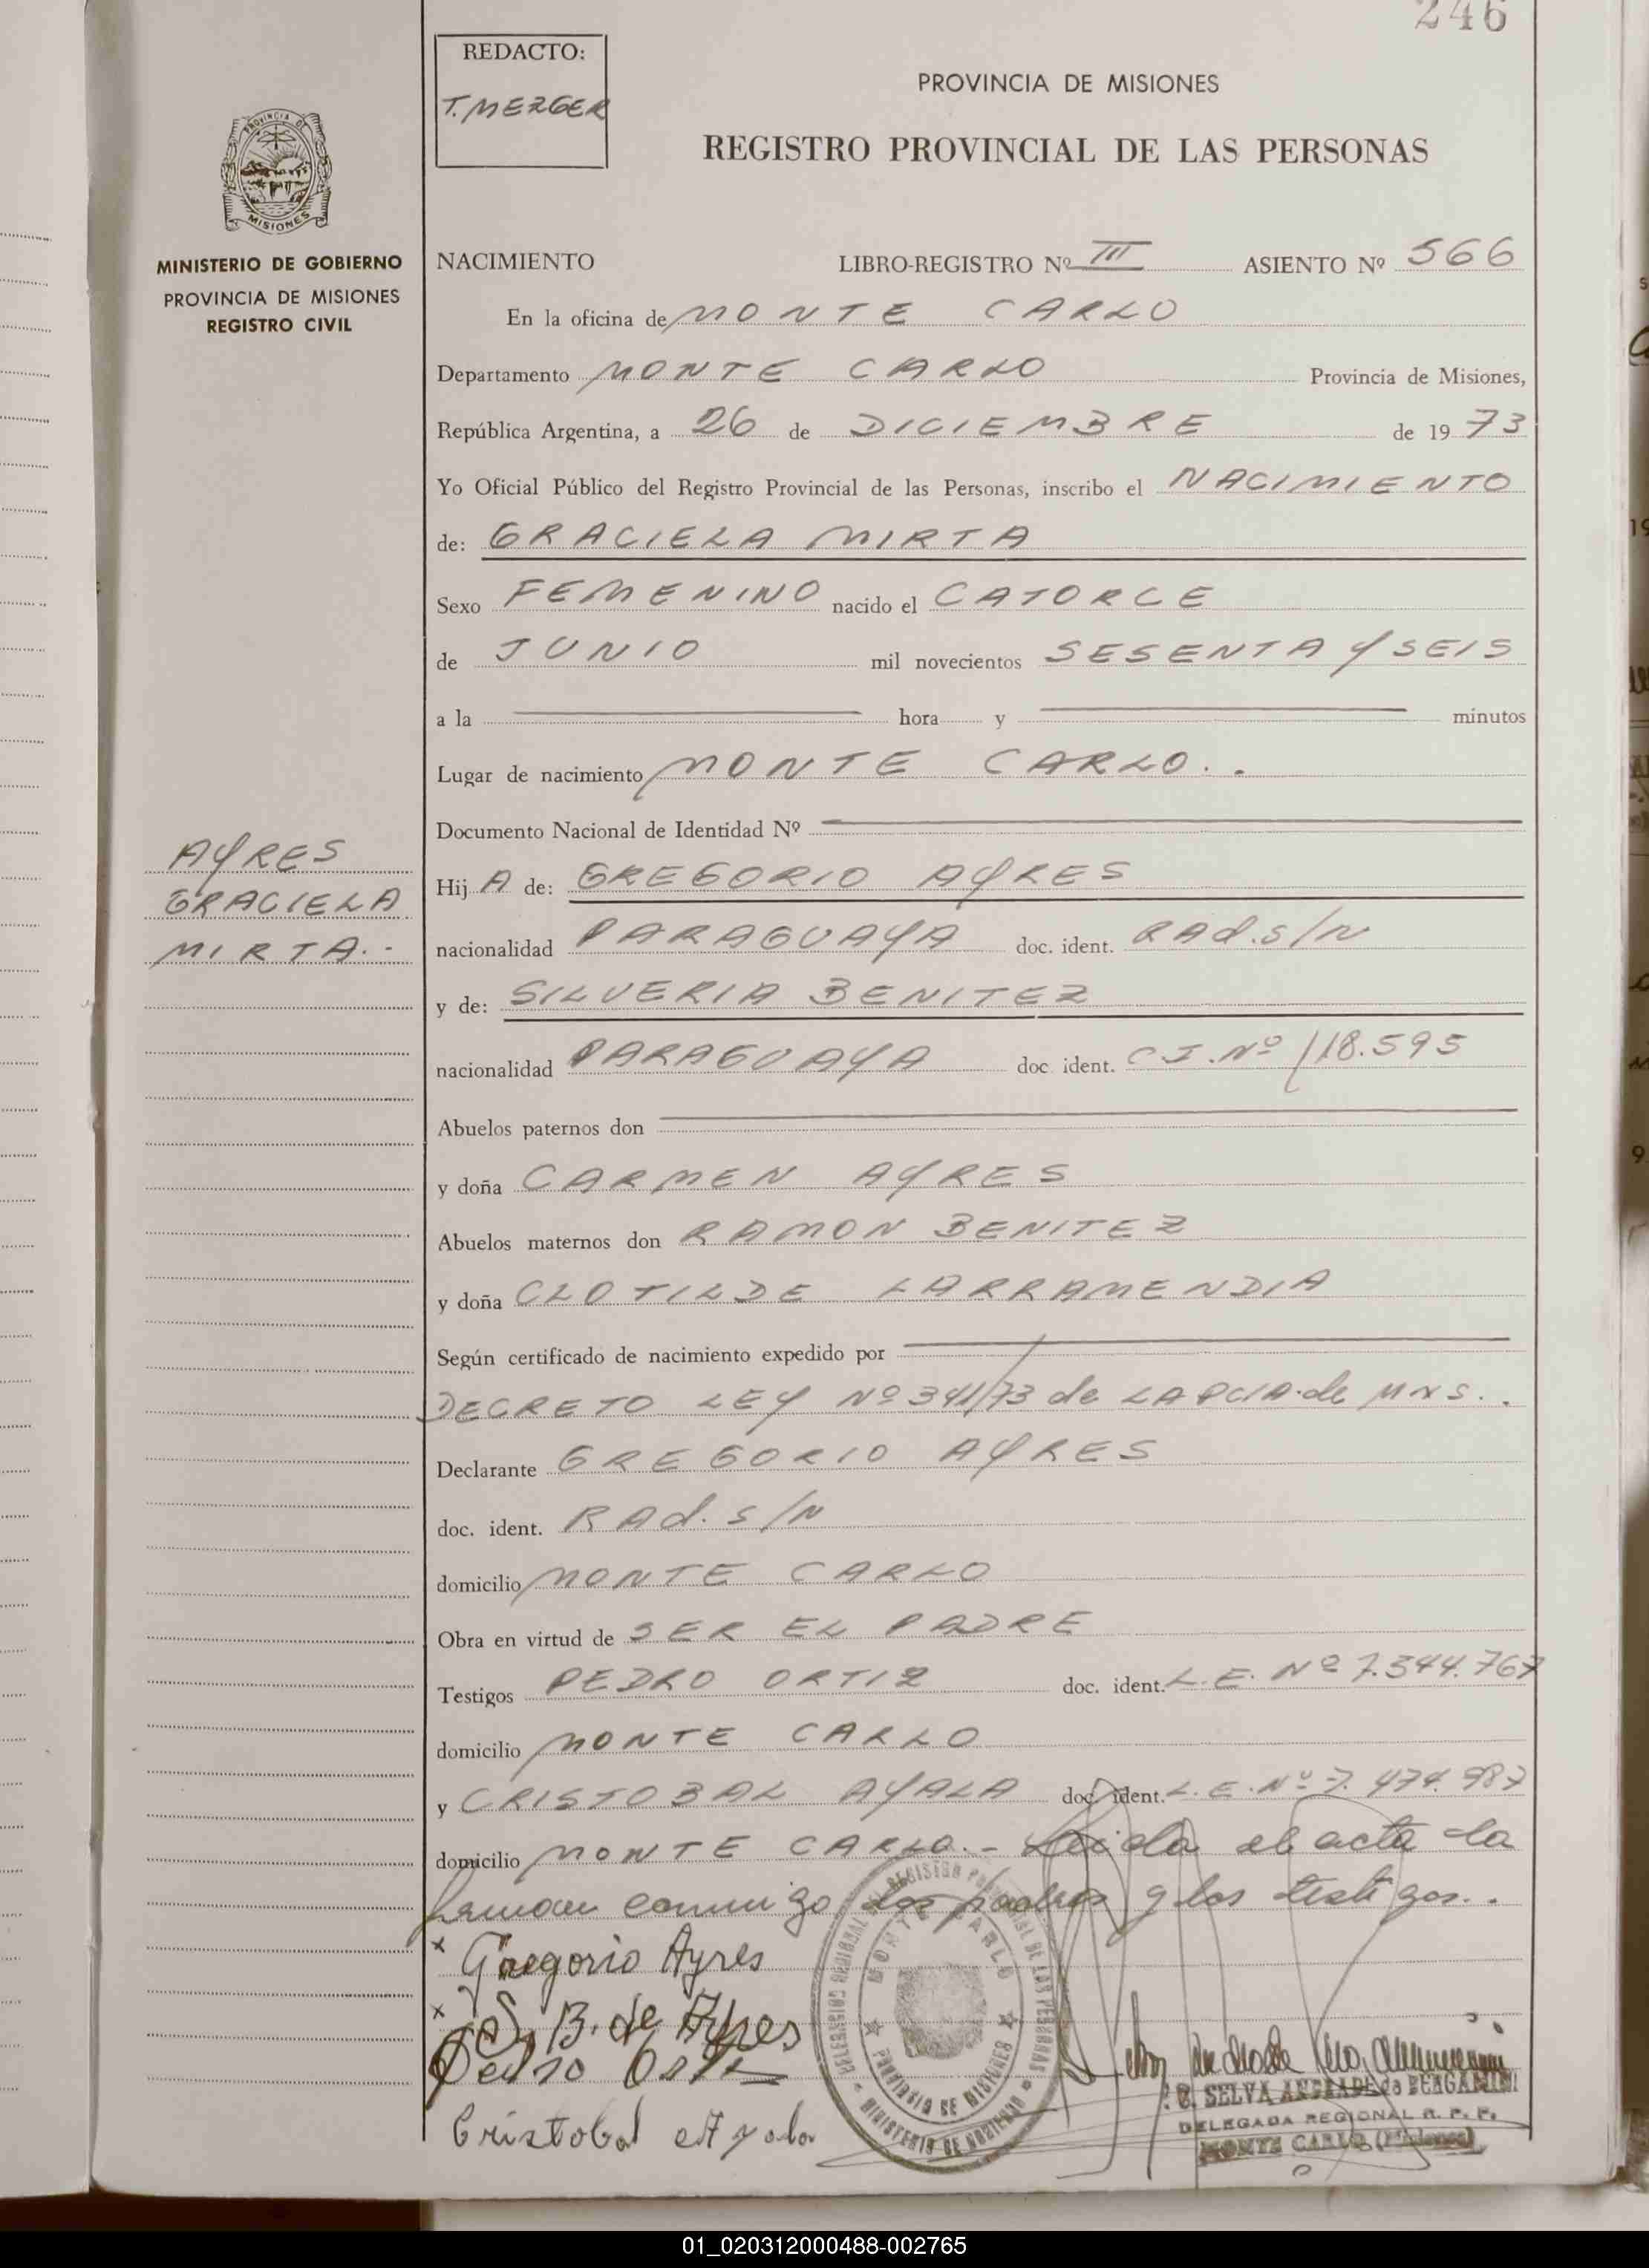 246
REDACTO:
T. MEZGER
PROVINCIA DE MISIONES
REGISTRO PROVINCIAL DE LAS PERSONAS
PROVINCIA DE
MISIONES
MINISTERIO DE GOBIERNO
PROVINCIA DE MISIONES
REGISTRO CIVIL
NACIMIENTO LIBRO-REGISTRO Nº III ASIENTO Nº 566
En la oficina de MONTE CARLO
Departamento MONTE CARLO Provincia de Misiones,
República Argentina, a 26 de DICIEMBRE de 1973
Yo Oficial Público del Registro Provincial de las Personas, inscribo el NACIMIENTO
de: GRACIELA MIRTA
Sexo FEMENINO nacido el CATORCE
de JUNIO mil novecientos SESENTA Y SEIS
a la hora y minutos
Lugar de nacimiento MONTE CARLO. .
Documento Nacional de Identidad Nº
AYRES
GRACIELA
MIRTA.-
Hij A de: GREGORIO AYRES
nacionalidad PARAGUAYA doc. ident. RAd. S/N
y de: SILVERIA BENITEZ
nacionalidad PARAGUAYA doc ident. C.I. Nº 118.595
Abuelos paternos don
y doña CARMEN AYRES
Abuelos maternos don RAMON BENITEZ
y doña CLOTILDE LARRAMENDIA
Según certificado de nacimiento expedido por
DECRETO LEY Nº 341/73 de LA PCIA. de MNS. .
Declarante GREGORIO AYRES
doc. ident. RAd. S/N
domicilio MONTE CARLO
Obra en virtud de SER EL PADRE
Testigos PEDRO ORTIZ doc. ident. L.E. Nº 7.544.767
domicilio MONTE CARLO
y CRISTOBAL AYALA doc. ident. L.E. Nº 7.474.987
domicilio MONTE CARLO.- Leida el acta la
firman conmigo los padres y los testigos. .
x Gregorio Ayres
x S. B. de Ayres
Pedro Ortiz
Cristobal Ayala
MONTE CARLO
PROVINCIA DE MISIONES
MINISTERIO DE GOBIERNO
SELVA ANDRADE de BERGAMINI
DELEGADA REGIONAL R. P. P.
MONTE CARLO (Misiones)
01_020312000488-002765